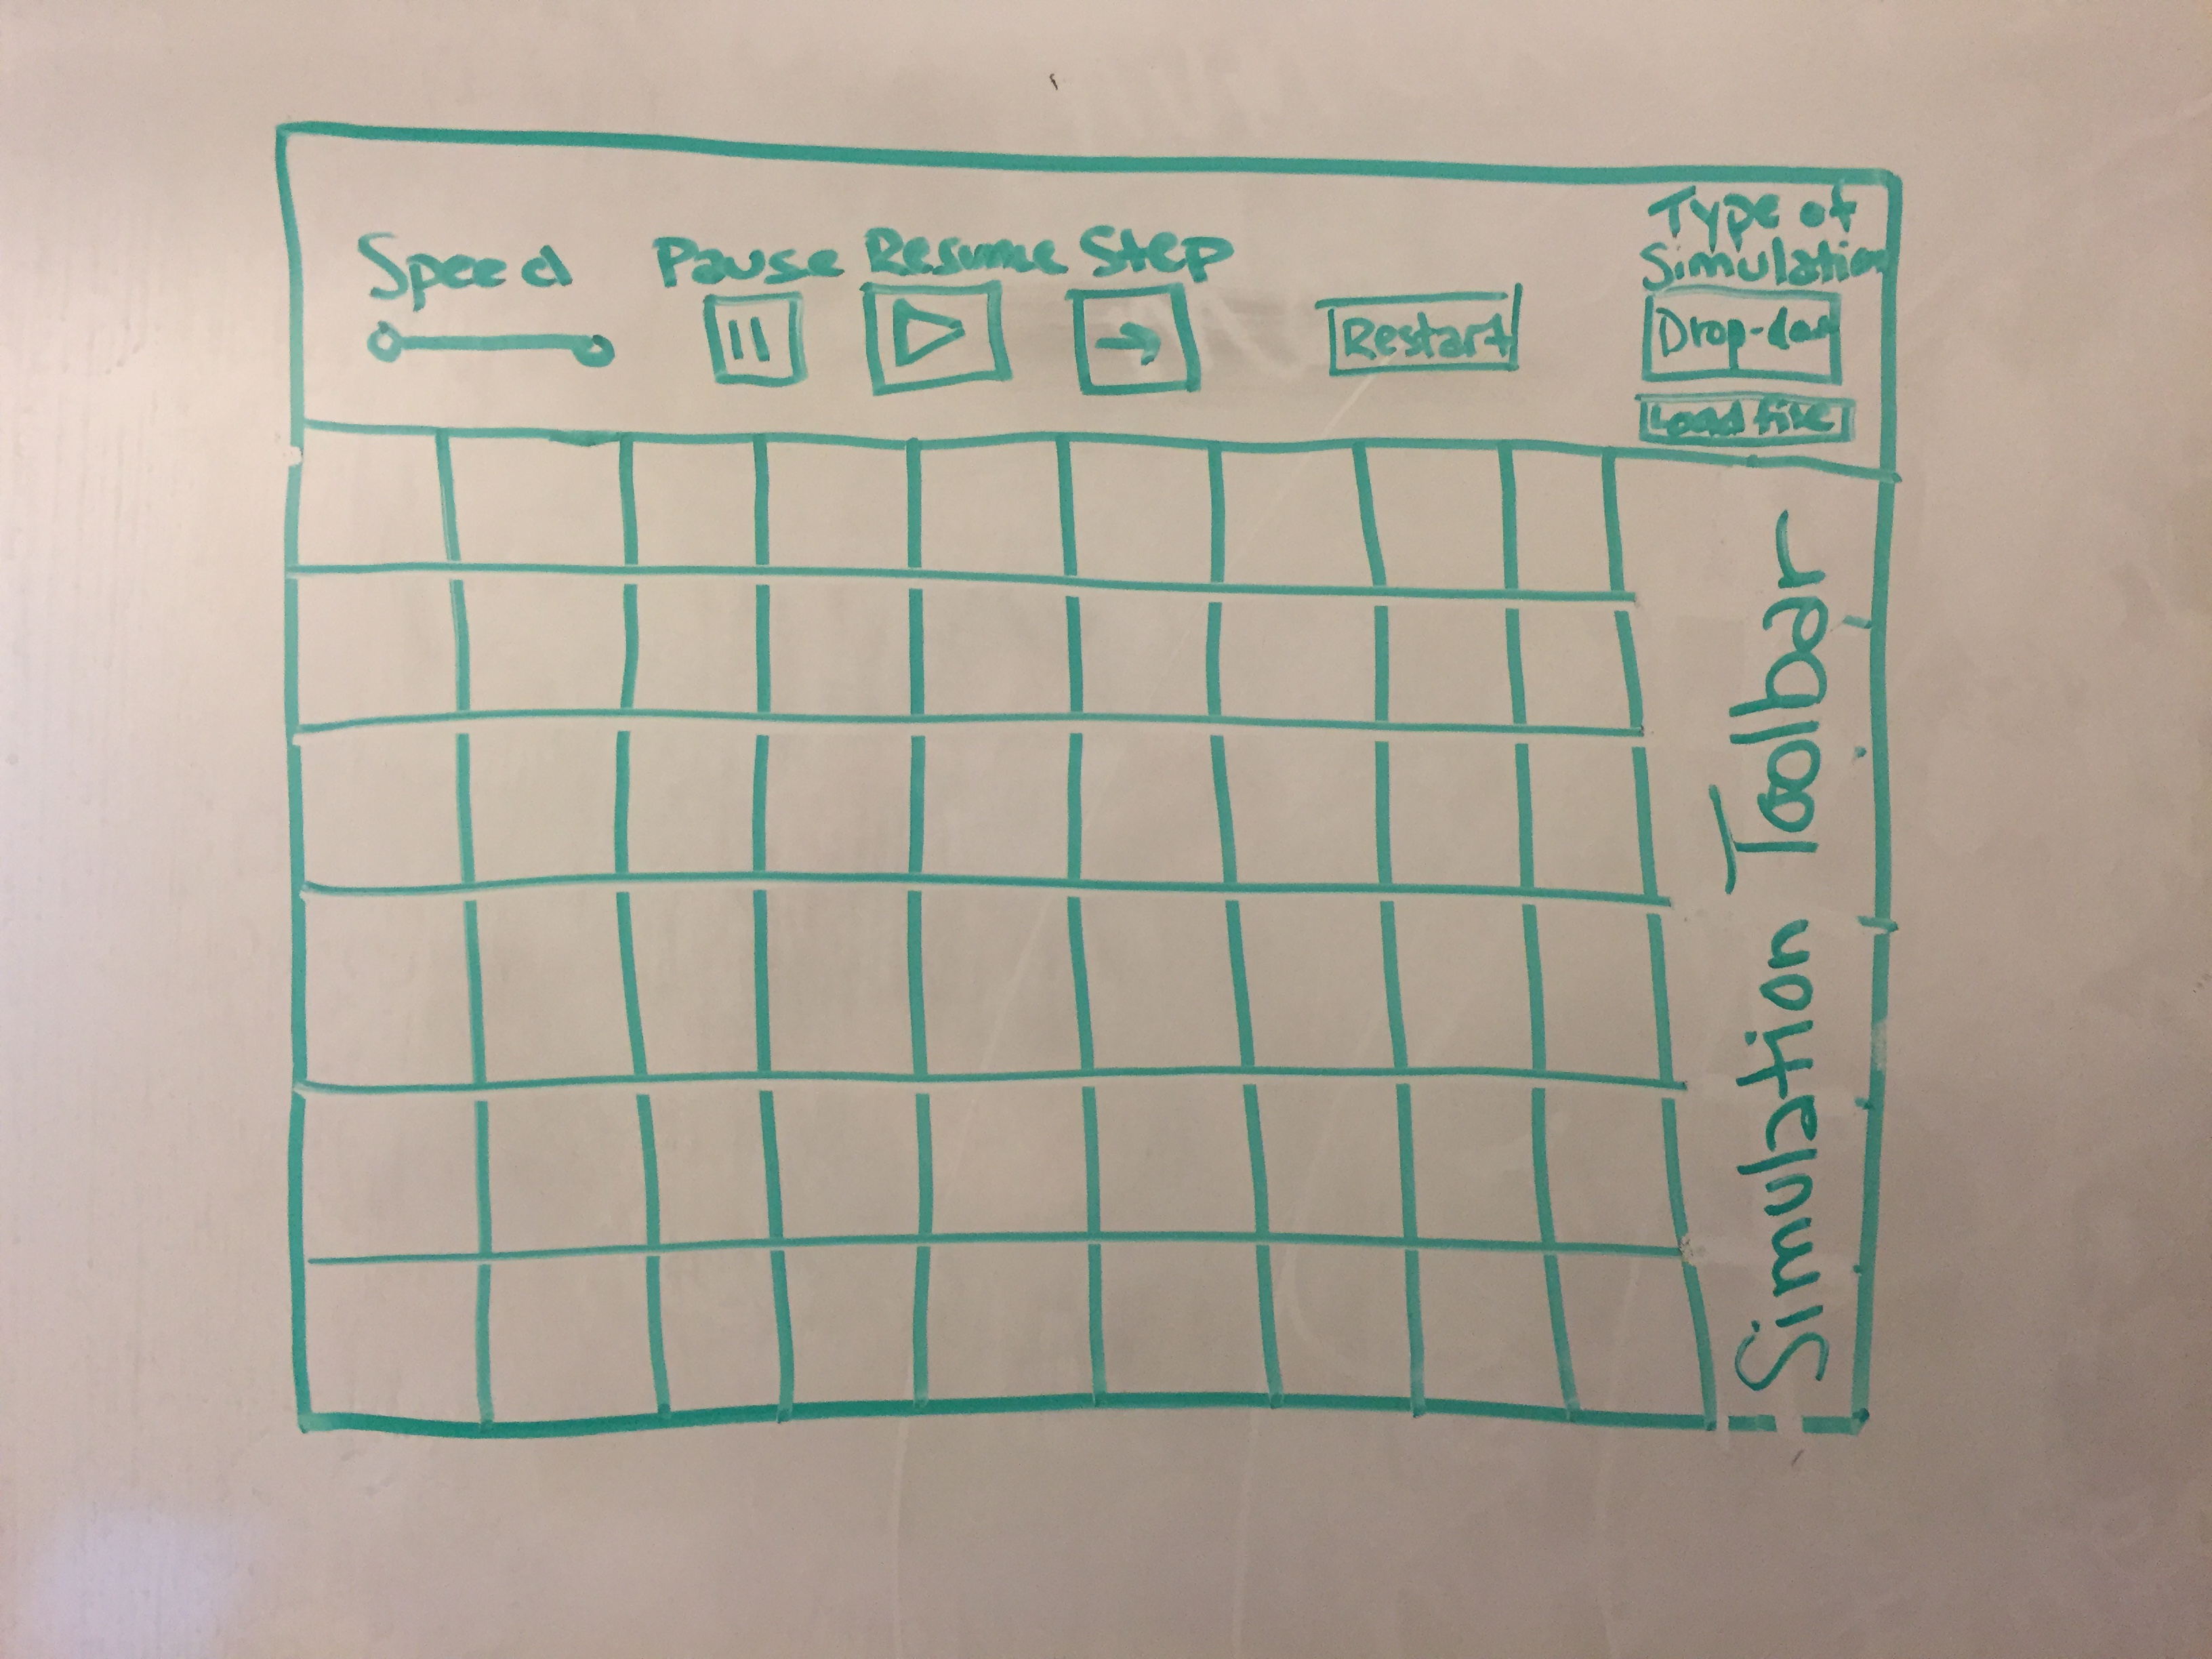 Speed
Pause Resume Step
Type of
Simulation
Restart
Load file
Simulation Toolbar